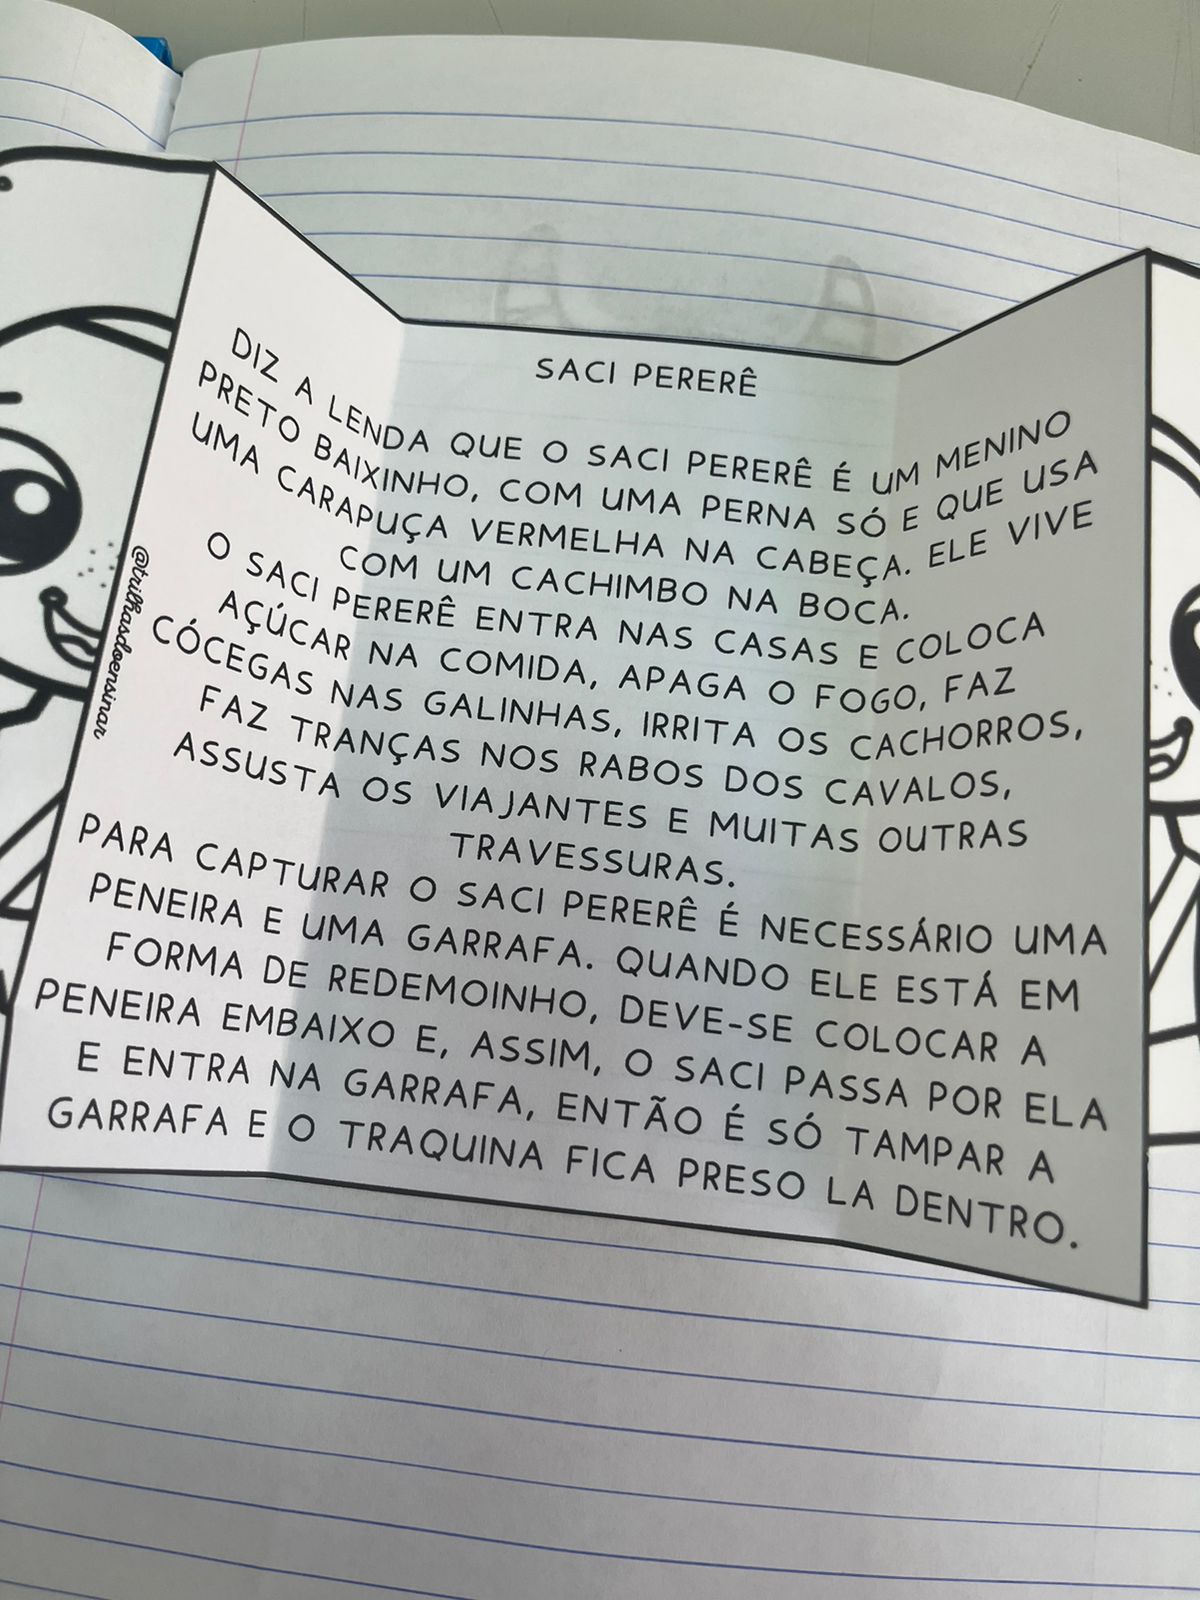 SACI PERERÊ
DIZ A LENDA QUE O SACI PERERÊ É UM MENINO
PRETO BAIXINHO, COM UMA PERNA SÓ E QUE USA
UMA CARAPUÇA VERMELHA NA CABEÇA. ELE VIVE
COM UM CACHIMBO NA BOCA.
O SACI PERERÊ ENTRA NAS CASAS E COLOCA
AÇÚCAR NA COMIDA, APAGA O FOGO, FAZ
CÓCEGAS NAS GALINHAS, IRRITA OS CACHORROS,
FAZ TRANÇAS NOS RABOS DOS CAVALOS,
ASSUSTA OS VIAJANTES E MUITAS OUTRAS
TRAVESSURAS.
PARA CAPTURAR O SACI PERERÊ É NECESSÁRIO UMA
PENEIRA E UMA GARRAFA. QUANDO ELE ESTÁ EM
FORMA DE REDEMOINHO, DEVE-SE COLOCAR A
PENEIRA EMBAIXO E, ASSIM, O SACI PASSA POR ELA
E ENTRA NA GARRAFA, ENTÃO É SÓ TAMPAR A
GARRAFA E O TRAQUINA FICA PRESO LA DENTRO.
@trilhasdoensinar